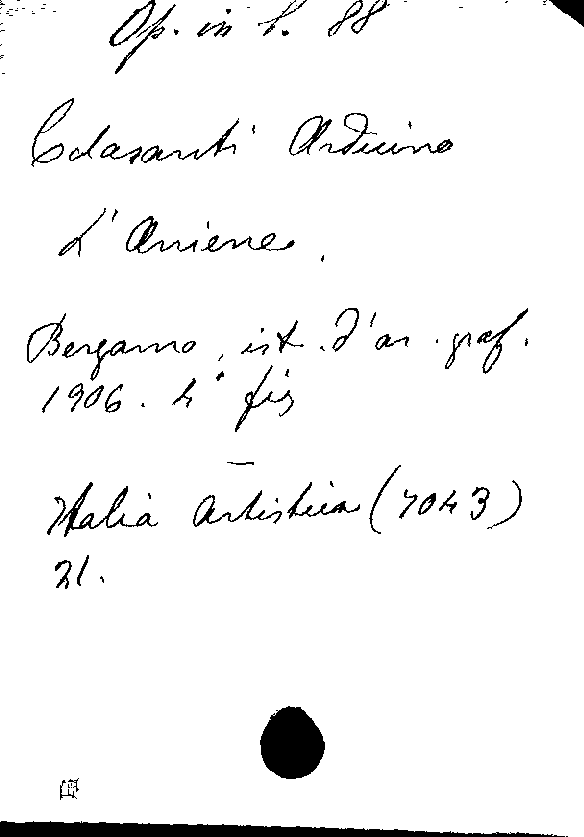 Op. in b. 88
Colasanti Arduino
L'Aniene.
Bergamo, ist. d'ar. graf.
1906. 4° fig
Italia Artistica (7043)
21.